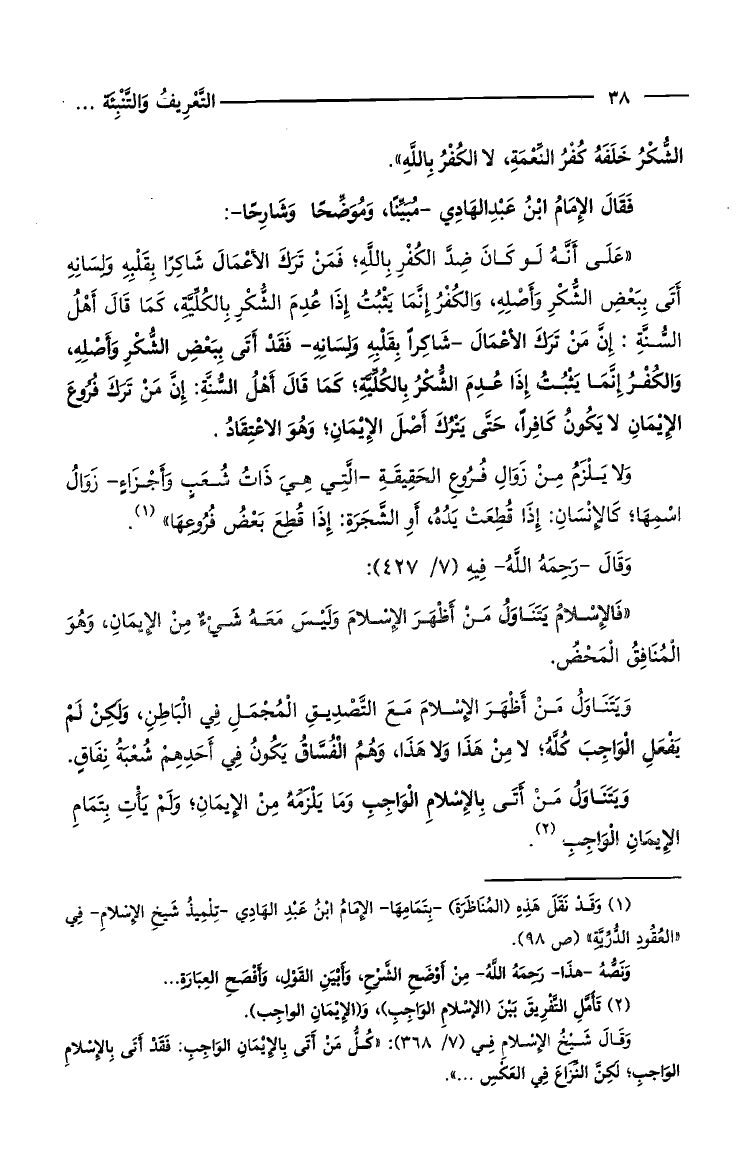 ٣٨ التَّعْرِيفُ وَالتَّنْبِئَة ...
الشُّكْرُ خَلَفَهُ كُفْرُ النِّعْمَةِ، لا الكُفْرُ بِاللَّهِ».
فَقَالَ الإِمَامُ ابْنُ عَبْدِالهَادِي -مُبَيِّنًا، وَمُوَضِّحًا وَشَارِحًا-:
«عَلَى أَنَّهُ لَو كَانَ ضِدَّ الكُفْرِ بِاللَّهِ؛ فَمَنْ تَرَكَ الأَعْمَالَ شَاكِرًا بِقَلْبِهِ وَلِسَانِهِ
أَتَى بِبَعْضِ الشُّكْرِ وَأَصْلِهِ، وَالكُفْرُ إِنَّمَا يَثْبُتُ إِذَا عُدِمَ الشُّكْرُ بِالكُلِّيَّةِ، كَمَا قَالَ أَهْلُ
السُّنَّةِ : إِنَّ مَنْ تَرَكَ الأَعْمَالَ -شَاكِراً بِقَلْبِهِ وَلِسَانِهِ- فَقَدْ أَتَى بِبَعْضِ الشُّكْرِ وَأَصْلِهِ،
وَالكُفْرُ إِنَّمَا يَثْبُتُ إِذَا عُدِمَ الشُّكْرُ بِالكُلِّيَّةِ؛ كَمَا قَالَ أَهْلُ السُّنَّةِ: إِنَّ مَنْ تَرَكَ فُرُوعَ
الإِيْمَانِ لا يَكُونُ كَافِراً، حَتَّى يَتْرُكَ أَصْلَ الإِيْمَانِ؛ وَهُوَ الاعْتِقَادُ .
وَلا يَلْزَمُ مِنْ زَوَالِ فُرُوعِ الحَقِيقَةِ -الَّتِي هِيَ ذَاتُ شُعَبٍ وَأَجْزَاءٍ- زَوَالُ
اسْمِهَا؛ كَالإِنْسَانِ: إِذَا قُطِعَتْ يَدُهُ، أَوِ الشَّجَرَةِ: إِذَا قُطِعَ بَعْضُ فُرُوعِهَا» (١).
وَقَالَ -رَحِمَهُ اللَّهُ- فِيهِ (٧/ ٤٢٧):
«فَالإِسْلامُ يَتَنَاوَلُ مَنْ أَظْهَرَ الإِسْلامَ وَلَيْسَ مَعَهُ شَيْءٌ مِنَ الإِيمَانِ، وَهُوَ
الْمُنَافِقُ الْمَحْضُ.
وَيَتَنَاوَلُ مَنْ أَظْهَرَ الإِسْلامَ مَعَ التَّصْدِيقِ الْمُجْمَلِ فِي الْبَاطِنِ، وَلَكِنْ لَمْ
يَفْعَلِ الْوَاجِبَ كُلَّهُ؛ لا مِنْ هَذَا وَلا هَذَا، وَهُمُ الْفُسَّاقُ يَكُونُ فِي أَحَدِهِمْ شُعْبَةُ نِفَاقٍ.
وَيَتَنَاوَلُ مَنْ أَتَى بِالإِسْلامِ الْوَاجِبِ وَمَا يَلْزَمُهُ مِنَ الإِيمَانِ؛ وَلَمْ يَأْتِ بِتَمَامِ
الإِيمَانِ الْوَاجِبِ (٢).
(١) وَقَدْ نَقَلَ هَذِهِ (المُنَاظَرَةَ) -بِتَمَامِهَا- الإِمَامُ ابْنُ عَبْدِ الهَادِي -تِلْمِيذُ شَيخِ الإِسْلامِ- فِي
«العُقُودِ الدُّرِّيَّةِ» (ص ٩٨).
وَنَصُّهُ -هذَا- رَحِمَهُ اللَّهُ- مِنْ أَوْضَحِ الشَّرْحِ، وَأَبْيَنِ القَوْلِ، وَأَفْصَحِ العِبَارَةِ...
(٢) تَأَمَّلِ التَّفْرِيقَ بَيْنَ (الإِسْلامِ الوَاجِبِ)، وَ(الإِيْمَانِ الواجِبِ).
وَقَالَ شَيْخُ الإِسْلامِ فِي (٧/ ٣٦٨): «كُلُّ مَنْ أَتَى بِالإِيْمَانِ الوَاجِبِ: فَقَدْ أَتَى بِالإِسْلامِ
الوَاجِبِ؛ لَكِنَّ النِّزَاعَ فِي العَكْسِ ...».